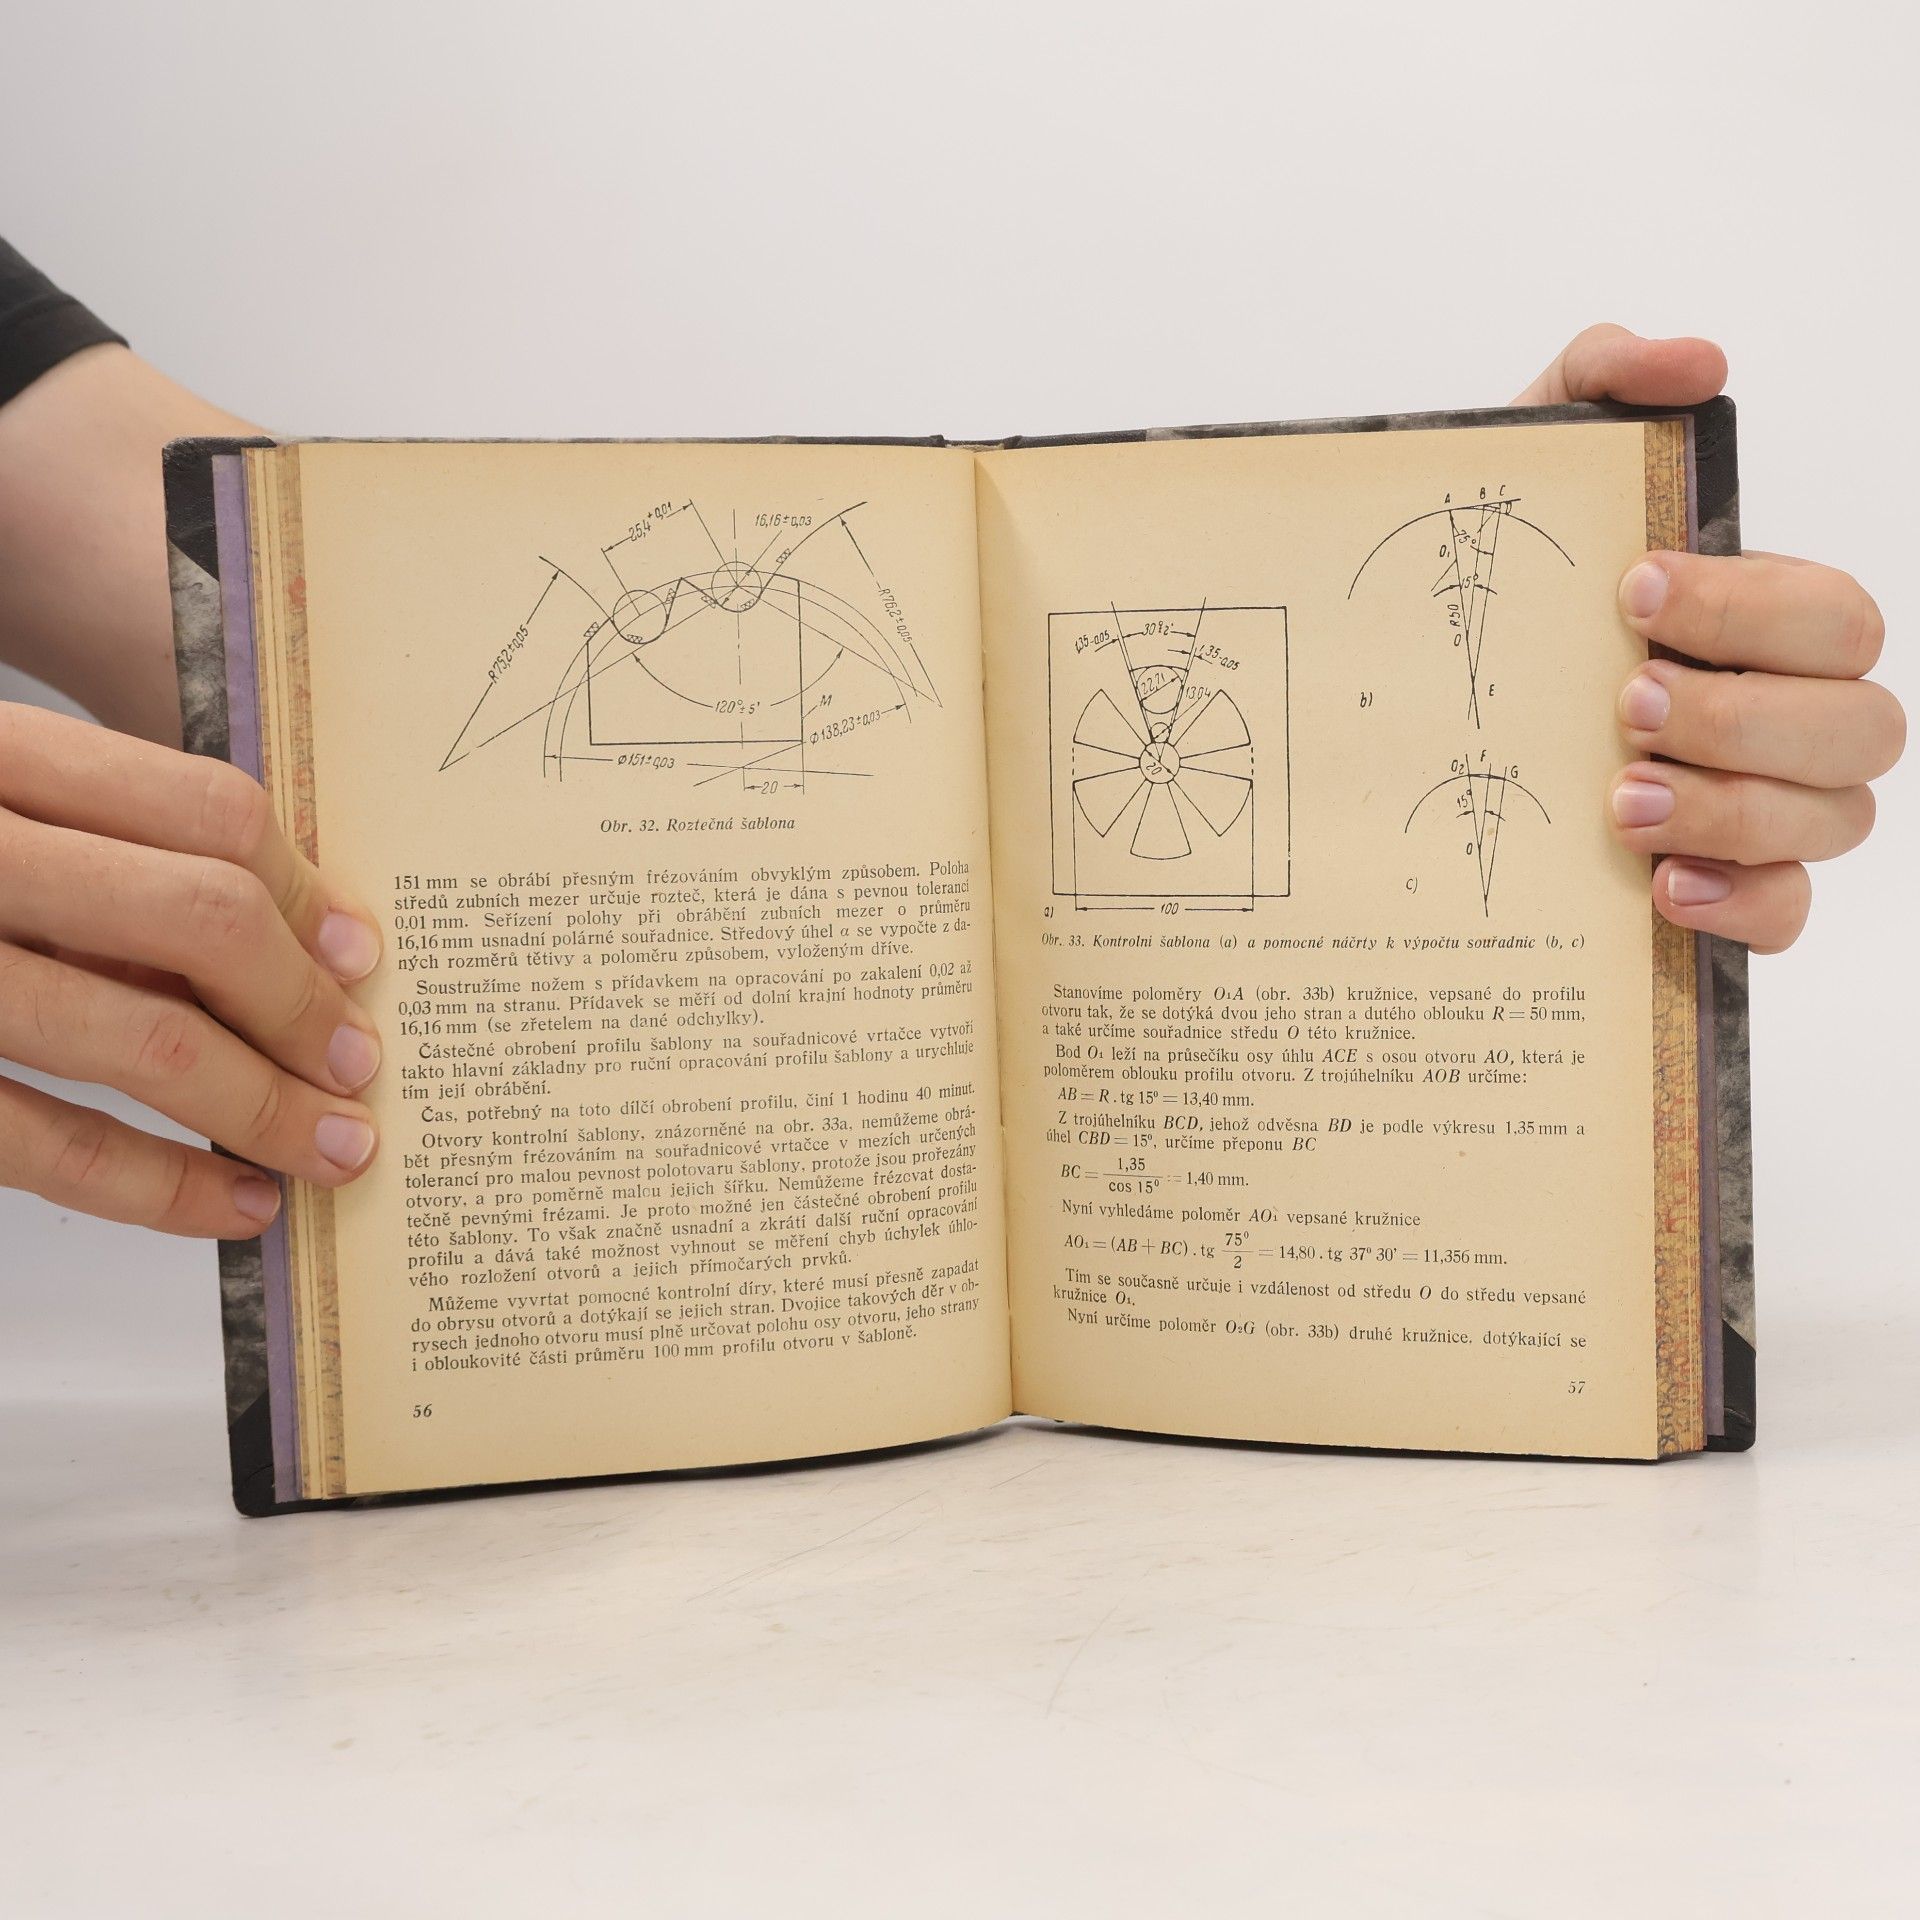 25,4±0,01
16,16±0,03
R75,2±0,05
R76,2±0,05
120°±5'
M
Ø138,23±0,03
Ø151±0,03
20
Obr. 32. Roztečná šablona
151 mm se obrábí přesným frézováním obvyklým způsobem. Poloha
středů zubních mezer určuje rozteč, která je dána s pevnou tolerancí
0,01 mm. Seřízení polohy při obrábění zubních mezer o průměru
16,16 mm usnadní polárné souřadnice. Středový úhel α se vypočte z da-
ných rozměrů tětivy a poloměru způsobem, vyloženým dříve.
Soustružíme nožem s přídavkem na opracování po zakalení 0,02 až
0,03 mm na stranu. Přídavek se měří od dolní krajní hodnoty průměru
16,16 mm (se zřetelem na dané odchylky).
Částečné obrobení profilu šablony na souřadnicové vrtačce vytvoří
takto hlavní základny pro ruční opracování profilu šablony a urychluje
tím její obrábění.
Čas, potřebný na toto dílčí obrobení profilu, činí 1 hodinu 40 minut.
Otvory kontrolní šablony, znázorněné na obr. 33a, nemůžeme obrá-
bět přesným frézováním na souřadnicové vrtačce v mezích určených
tolerancí pro malou pevnost polotovaru šablony, protože jsou prořezány
otvory, a pro poměrně malou jejich šířku. Nemůžeme frézovat dosta-
tečně pevnými frézami. Je proto možné jen částečné obrobení profilu
této šablony. To však značně usnadní a zkrátí další ruční opracování
profilu a dává také možnost vyhnout se měření chyb úchylek úhlo-
vého rozložení otvorů a jejich přímočarých prvků.
Můžeme vyvrtat pomocné kontrolní díry, které musí přesně zapadat
do obrysu otvorů a dotýkají se jejich stran. Dvojice takových děr v ob-
rysech jednoho otvoru musí plně určovat polohu osy otvoru, jeho strany
i obloukovité části průměru 100 mm profilu otvoru v šabloně.
56
A B C
D
O₁
75°
15°
R50
O
E
b)
1,35-0,05
30°±2'
1,35-0,05
22,71
13,04
20
100
a)
O₂ F G
15°
O
c)
Obr. 33. Kontrolní šablona (a) a pomocné náčrty k výpočtu souřadnic (b, c)
Stanovíme poloměry O₁A (obr. 33b) kružnice, vepsané do profilu
otvoru tak, že se dotýká dvou jeho stran a dutého oblouku R = 50 mm,
a také určíme souřadnice středu O této kružnice.
Bod O₁ leží na průsečíku osy úhlu ACE s osou otvoru AO, která je
poloměrem oblouku profilu otvoru. Z trojúhelníku AOB určíme:
AB = R . tg 15° = 13,40 mm.
Z trojúhelníku BCD, jehož odvěsna BD je podle výkresu 1,35 mm a
úhel CBD = 15°, určíme přeponu BC
BC = 1,35 / cos 15° = 1,40 mm.
Nyní vyhledáme poloměr AO₁ vepsané kružnice
AO₁ = (AB + BC) . tg 75° / 2 = 14,80 . tg 37° 30' = 11,356 mm.
Tím se současně určuje i vzdálenost od středu O do středu vepsané
kružnice O₁.
Nyní určíme poloměr O₂G (obr. 33b) druhé kružnice, dotýkající se
57